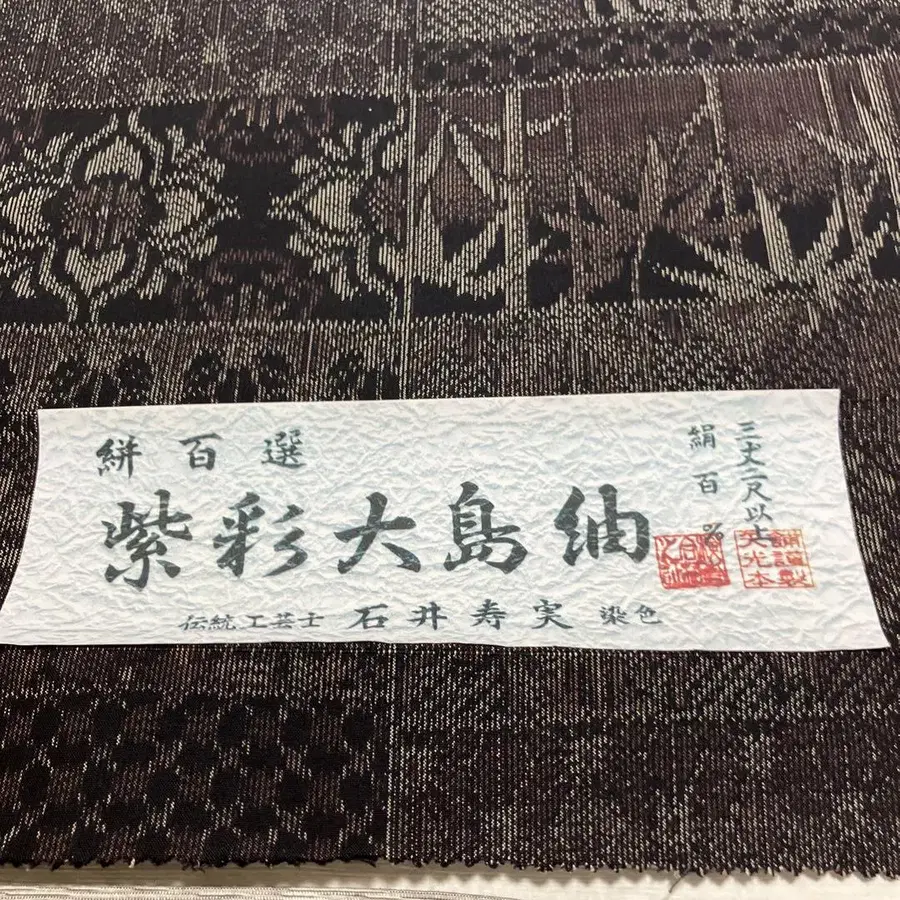 絣百選
紫彩大島紬
伝統工芸士 石井寿実 染色
三丈二尺以上
絹百%
謹製